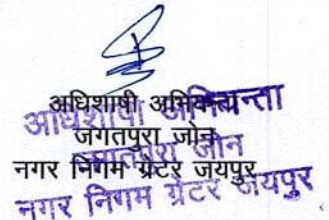 अधिशाषी अभियन्ता
जगतपुरा जोन
नगर निगम ग्रेटर जयपुर
अधिशाषी अभियन्ता
जगतपुरा जोन
नगर निगम ग्रेटर जयपुर